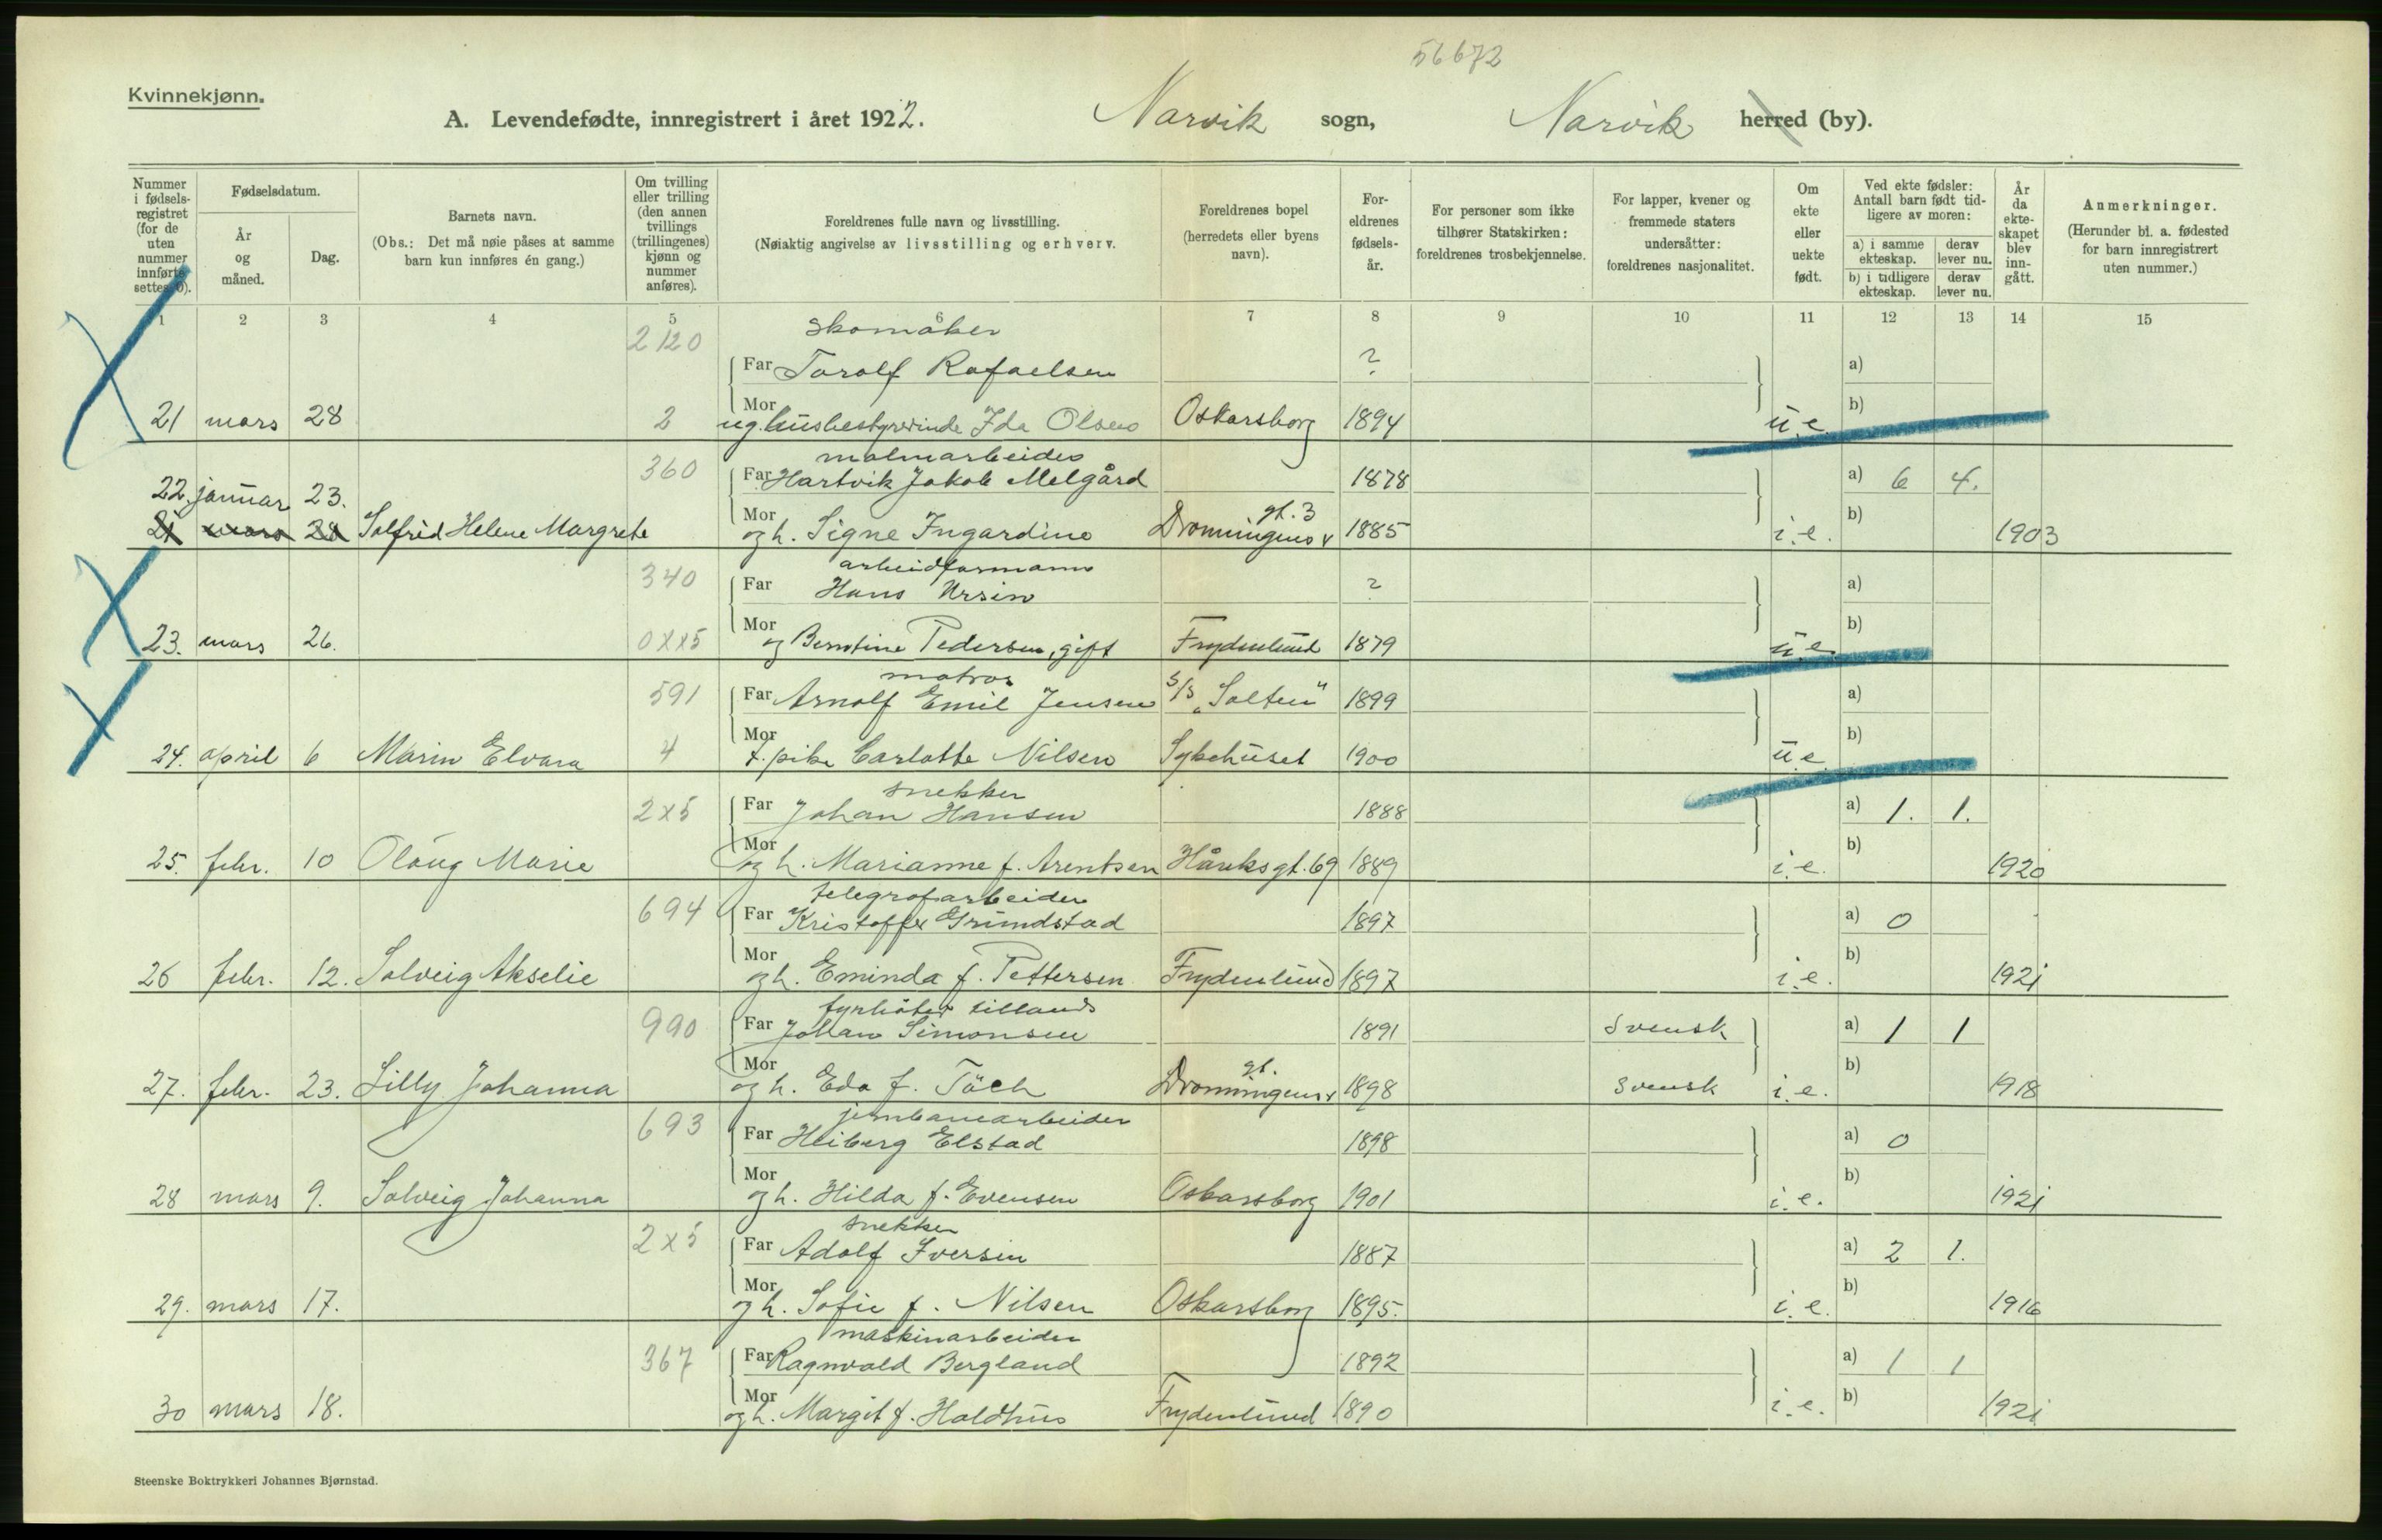 56672
Kvinnekjønn.
A. Levendefødte, innregistrert i året 1922. Narvik sogn, Narvik herred (by).
Nummer i fødsels-registret (for de uten nummer innførte settes 0).
Fødselsdatum.
År og måned.
Dag.
Barnets navn.
(Obs.: Det må nøie påses at samme barn kun innføres én gang.)
Om tvilling eller trilling (den annen tvillings (trillingenes) kjønn og nummer anføres).
Foreldrenes fulle navn og livsstilling.
(Nøiaktig angivelse av livsstilling og erhverv.
Foreldrenes bopel (herredets eller byens navn).
For-eldrenes fødsels-år.
For personer som ikke tilhører Statskirken: foreldrenes trosbekjennelse.
For lapper, kvener og fremmede staters undersåtter: foreldrenes nasjonalitet.
Om ekte eller uekte født.
Ved ekte fødsler: Antall barn født tid-ligere av moren:
a) i samme ekteskap.
derav lever nu.
b) i tidligere ekteskap.
derav lever nu.
År da ekte-skapet blev inn-gått.
Anmerkninger.
(Herunder bl. a. fødested for barn innregistrert uten nummer.)
1 2 3 4 5 6 7 8 9 10 11 12 13 14 15
2120 skomaker
Far Torolf Rafaelsen ? a)
21 mars 28 2 Mor ug. husbestyrerinde Ida Olsen Oskarsborg 1894 u.e. b)
malmarbeider
360 Far Hartvik Jakob Melgård 1878 a) 6 4.
22. januar 23.
21 mars 28 Solfrid Helene Margrete Mor og h. Signe Ingardine Dronningens gt. 3 1885 i.e. b) 1903
arbeidformann
340 Far Hans Ursin ? a)
23. mars 26. 0xx5 Mor og Berntine Pedersen, gift Frydenlund 1879 u.e. b)
matros
591 Far Arnolf Emil Jensen S/S „Salten" 1899 a)
24. april 6 Marin Elvara 4 Mor t.pike Carlotte Nilsen Sykehuset 1900 u.e. b)
snekker
2x5 Far Johan Hansen 1888 a) 1. 1.
25. febr. 10 Olaug Marie Mor og h. Marianne f. Arentsen Håreksgt. 69 1889 i.e. b) 1920
telegrafarbeider
694 Far Kristoffer Grundstad 1897 a) 0
26 febr. 12. Solveig Akselie Mor og h. Eminda f. Pettersen Frydenlund 1897 i.e. b) 1921
fyrbøter tillands
990 Far Johan Simonsen 1891 svensk a) 1 1
27. febr. 23. Lilly Johanna Mor og h. Eda f. Täch Dronningens gt. 1898 svensk i.e. b) 1918
jernbanearbeider
693 Far Heiberg Elstad 1898 a) 0
28 mars 9. Solveig Johanna Mor og h. Hilda f. Evensen Oskarsborg 1901 i.e. b) 1921
snekker
2x5 Far Adolf Iversen 1887 a) 2 1.
29. mars 17. Mor og h. Sofie f. Nilsen Oskarsborg 1895. i.e. b) 1916
maskinarbeider
367 Far Ragnvald Bergland 1892 a) 1 1
30 mars 18. Mor og h. Margit f. Holdhus Frydenlund 1890 i.e. b) 1921
Steenske Boktrykkeri Johannes Bjørnstad.